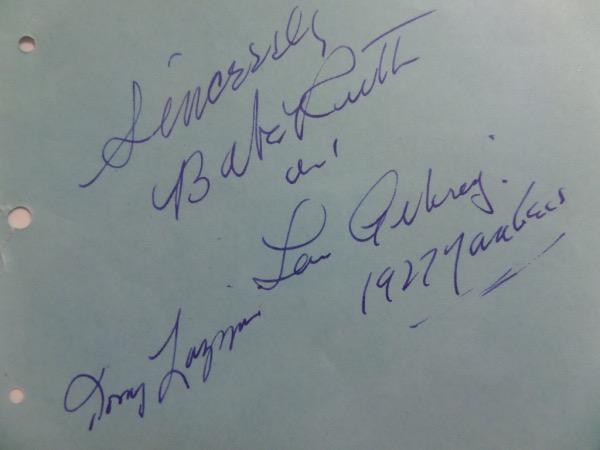 Sincerely
Babe Ruth
an'
Lou Gehrig.
1927 Yankees
Tony Lazzeri